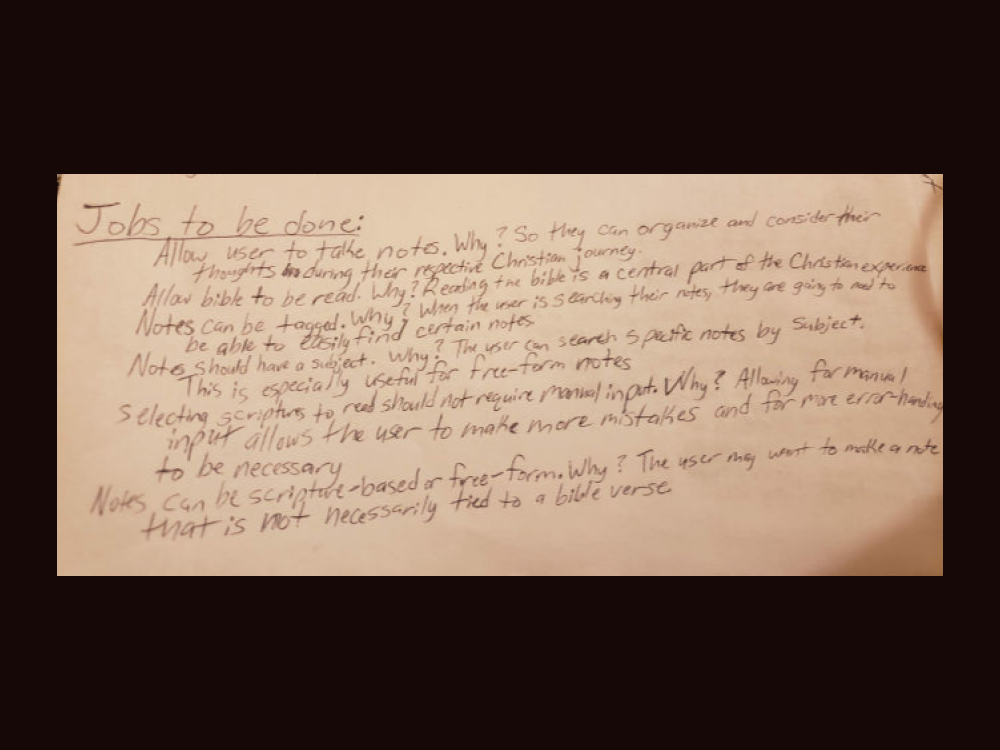 Jobs to be done:
Allow user to take notes. Why? So they can organize and consider their
thoughts during their respective Christian journey.
Allow bible to be read. Why? Reading the bible is a central part of the Christian experience
Notes can be tagged. Why? When the user is searching their notes, they are going to need to
be able to easily find certain notes
Notes should have a subject. Why? The user can search specific notes by subject.
This is especially useful for free-form notes
Selecting scriptures to read should not require manual input. Why? Allowing for manual
input allows the user to make more mistakes and for more error-handling
to be necessary
Notes can be scripture-based or free-form. Why? The user may want to make a note
that is not necessarily tied to a bible verse